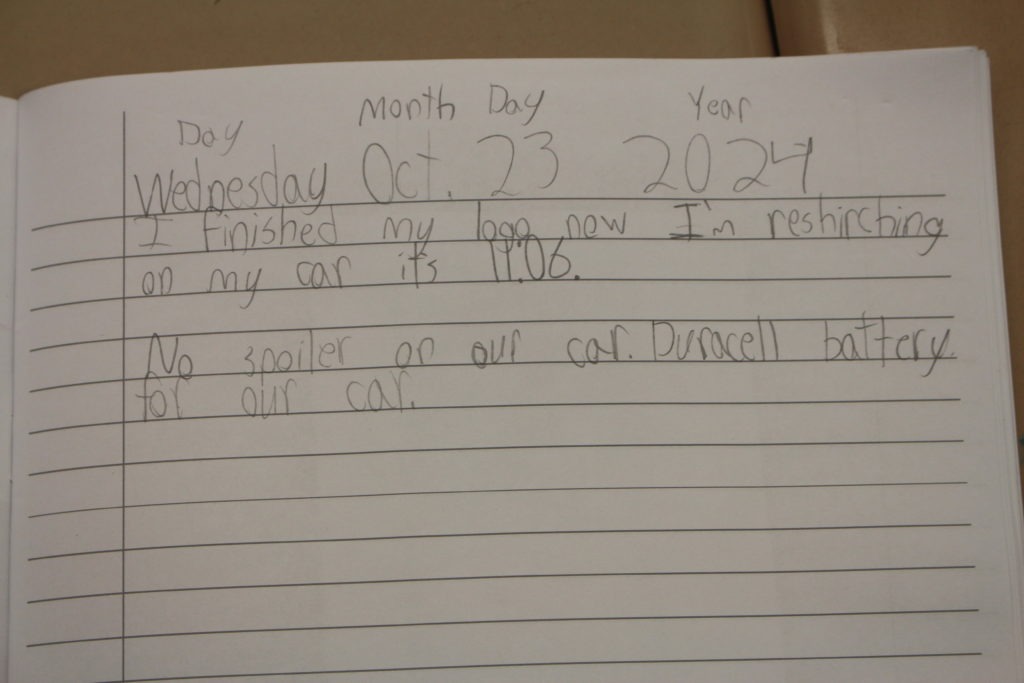 Day Month Day Year
Wednesday Oct. 23 2024
I finished my logo now I'm reshirching
on my car it's 11:06.
No spoiler on our car. Duracell battery
for our car.